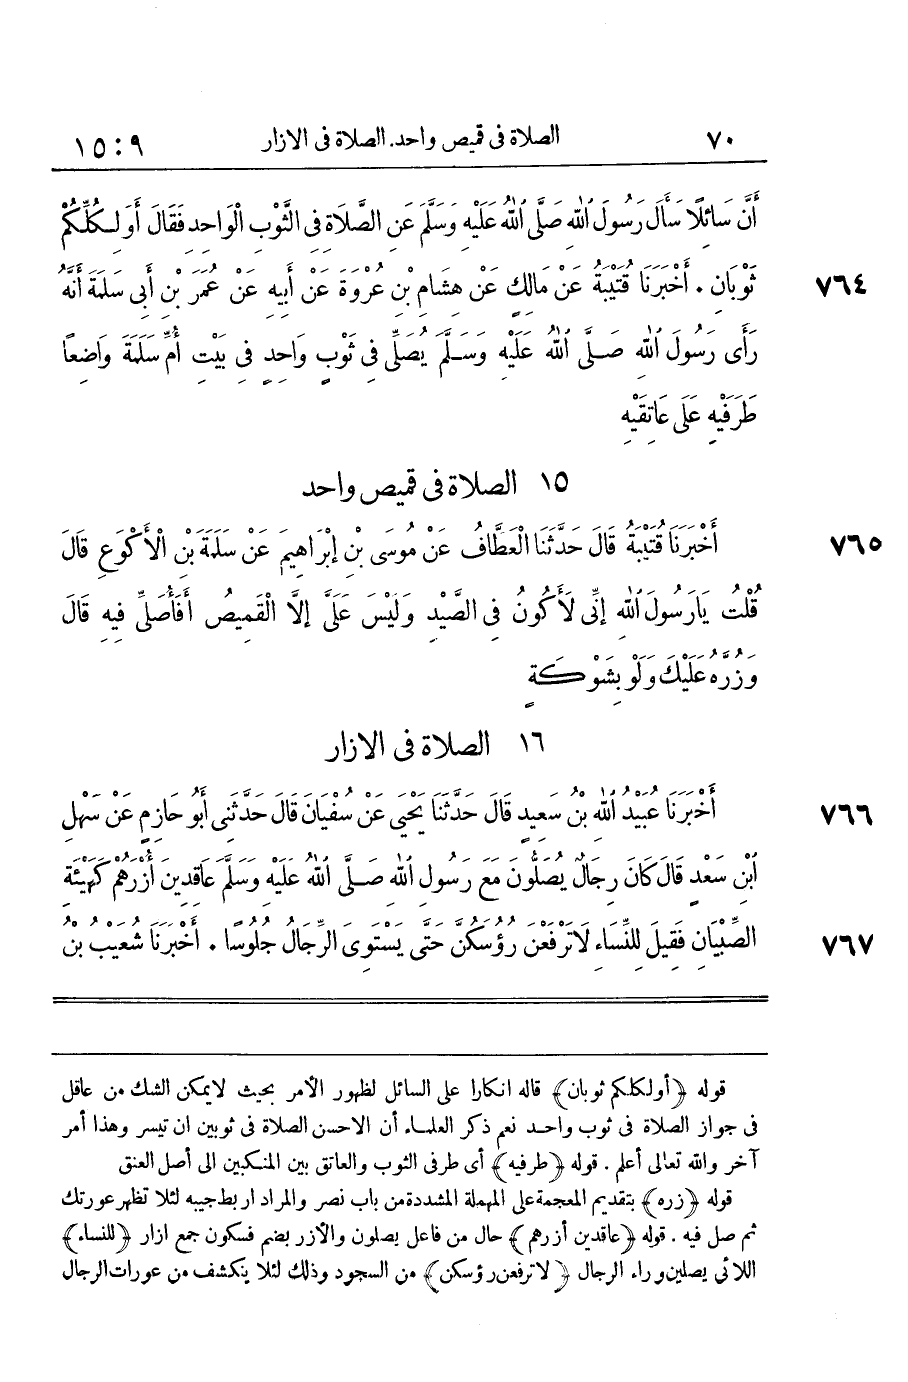 ٧٠ الصلاة فى قميص واحد. الصلاة فى الازار ٩ : ١٥
أَنَّ سَائِلًا سَأَلَ رَسُولَ اللهِ صَلَّى اللهُ عَلَيْهِ وَسَلَّمَ عَنِ الصَّلَاةِ فِى الثَّوْبِ الْوَاحِدِ فَقَالَ أَوَلِكُلِّكُمْ
٧٦٤ ثَوْبَانِ . أَخْبَرَنَا قُتَيْبَةُ عَنْ مَالِكٍ عَنْ هِشَامِ بْنِ عُرْوَةَ عَنْ أَبِيهِ عَنْ عُمَرَ بْنِ أَبِى سَلَمَةَ أَنَّهُ
رَأَى رَسُولَ اللهِ صَلَّى اللهُ عَلَيْهِ وَسَلَّمَ يُصَلِّى فِى ثَوْبٍ وَاحِدٍ فِى بَيْتِ أُمِّ سَلَمَةَ وَاضِعًا
طَرَفَيْهِ عَلَى عَاتِقَيْهِ
١٥ الصلاة فى قميص واحد
٧٦٥ أَخْبَرَنَا قُتَيْبَةُ قَالَ حَدَّثَنَا الْعَطَّافُ عَنْ مُوسَى بْنِ إِبْرَاهِيمَ عَنْ سَلَمَةَ بْنِ الْأَكْوَعِ قَالَ
قُلْتُ يَارَسُولَ اللهِ إِنِّى لَأَكُونُ فِى الصَّيْدِ وَلَيْسَ عَلَىَّ إِلَّا الْقَمِيصُ أَفَأُصَلِّى فِيهِ قَالَ
وَزُرَّهُ عَلَيْكَ وَلَوْ بِشَوْكَةٍ
١٦ الصلاة فى الازار
٧٦٦ أَخْبَرَنَا عُبَيْدُ اللهِ بْنُ سَعِيدٍ قَالَ حَدَّثَنَا يَحْيَى عَنْ سُفْيَانَ قَالَ حَدَّثَنِى أَبُو حَازِمٍ عَنْ سَهْلِ
ابْنِ سَعْدٍ قَالَ كَانَ رِجَالٌ يُصَلُّونَ مَعَ رَسُولِ اللهِ صَلَّى اللهُ عَلَيْهِ وَسَلَّمَ عَاقِدِينَ أُزْرَهُمْ كَهَيْئَةِ
٧٦٧ الصِّبْيَانِ فَقِيلَ لِلنِّسَاءِ لَاتَرْفَعْنَ رُؤُسَكُنَّ حَتَّى يَسْتَوِىَ الرِّجَالُ جُلُوسًا . أَخْبَرَنَا شُعَيْبُ بْنُ
قوله ﴿أولكلكم ثوبان﴾ قاله انكارا على السائل لظهور الأمر بحيث لايمكن الشك من عاقل
فى جواز الصلاة فى ثوب واحد نعم ذكر العلماء أن الاحسن الصلاة فى ثوبين ان تيسر وهذا أمر
آخر والله تعالى أعلم . قوله ﴿طرفيه﴾ أى طرفى الثوب والعاتق بين المنكبين الى أصل العنق
قوله ﴿زره﴾ بتقديم المعجمة على المهملة المشددة من باب نصر والمراد اربط جيبه لئلا تظهر عورتك
ثم صل فيه . قوله ﴿عاقدين أزرهم﴾ حال من فاعل يصلون والأزر بضم فسكون جمع ازار ﴿للنساء﴾
اللاتى يصلين وراء الرجال ﴿لاترفعن رؤسكن﴾ من السجود وذلك لئلا ينكشف من عورات الرجال